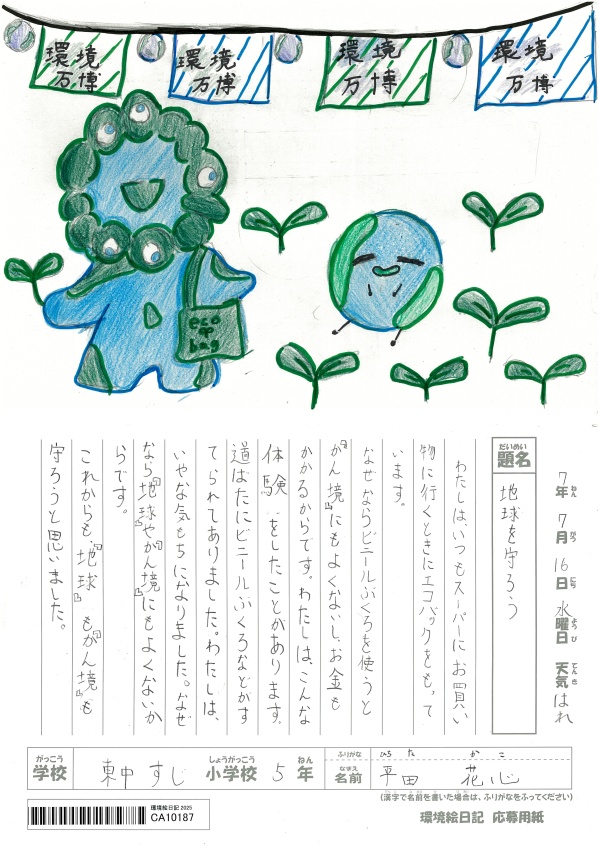 環境万博
環境万博
環境万博
環境万博
eco
bag
7年7月16日水曜日 天気はれ
ねん がつ にち ようび てんき
だいめい
題名
地球を守ろう
わたしは、いつもスーパーにお買い
物に行くときにエコバックをもって
います。
なぜならビニールぶくろを使うと
『かん境』にもよくないし、お金も
かかるからです。わたしは、こんな
体験をしたことがあります。
道ばたにビニールぶくろなどがす
てられてありました。わたしは、
いやな気もちになりました。なぜ
なら『地球』や『かん境』にもよくないか
らです。
これからも、『地球』も『かん境』も
守ろうと思いました。
がっこう
学校
東中すじ
しょうがっこう
小学校
5
ねん
年
ふりがな
ひらた かこ
なまえ
名前
平田 花心
(漢字で名前を書いた場合は、ふりがなをふってください)
環境絵日記 2025
CA10187
環境絵日記 応募用紙